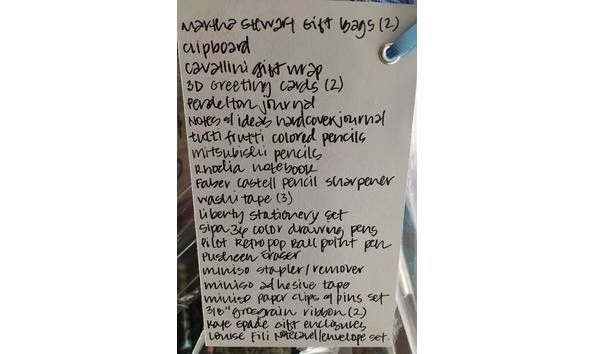 Martha Stewart Gift Bags (2)
Clipboard
Cavallini gift wrap
3D Greeting Cards (2)
Pendelton journal
Notes & Ideas hardcover journal
tutti frutti colored pencils
mitsubishi pencils
Rhodia notebook
Faber Castell pencil sharpener
washi tape (3)
Liberty stationery set
Sipa 36 color drawing pens
Pilot Retro Pop Ball point pen
Pusheen Eraser
miniso stapler/remover
miniso adhesive tape
miniso paper clips & pins set
3/8" grosgrain ribbon (2)
Kate Spade Gift enclosures
Louise Fili Notecard/envelope set.